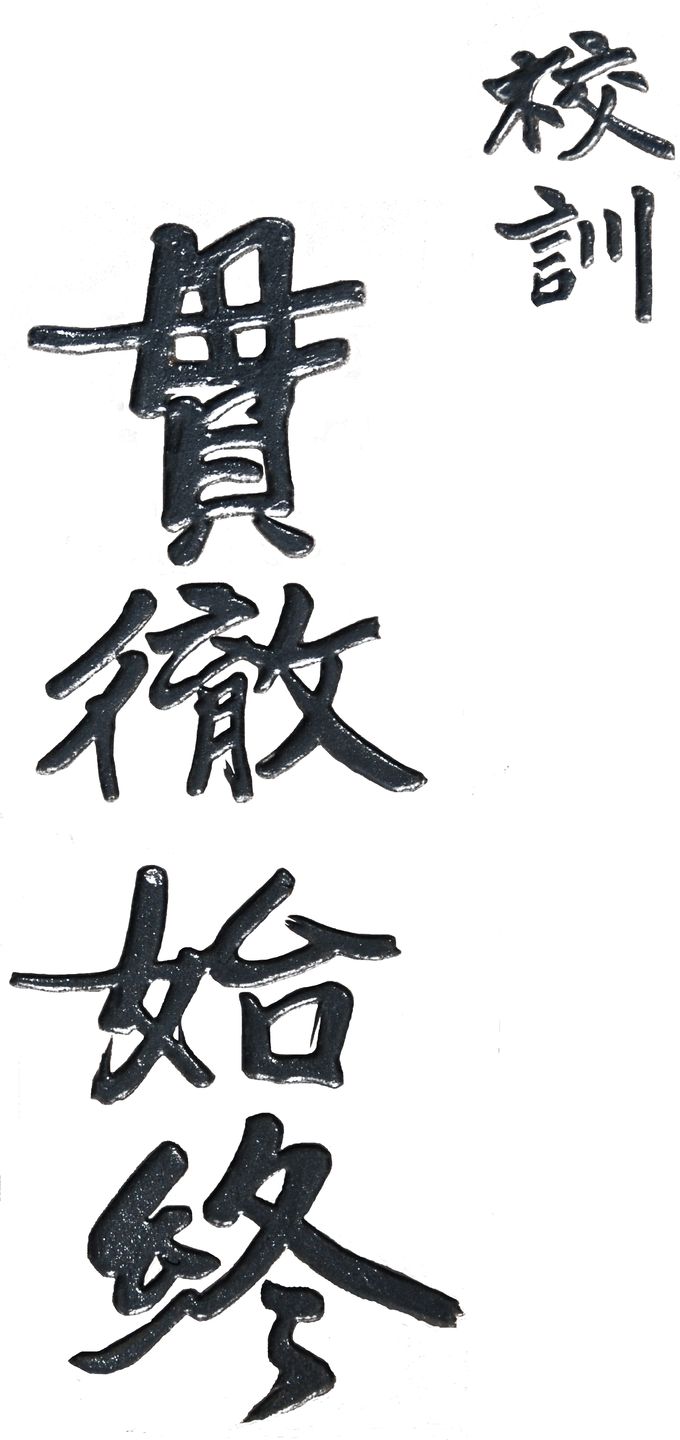 校訓
貫徹始終